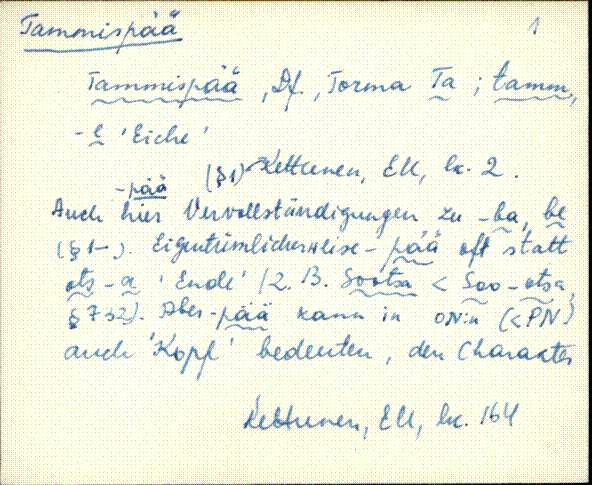 Tammispää 1
Tammispää, Df., Torma Ta; tamm,
-e 'Eiche'
(§1) Kettunen, EU, lk. 2.
-pää
Auch hier Vervollständigungen zu -ba, be
(§1-). Eigentümlicherweise -pää oft statt
ots -a 'Ende' (z. B. Sootsa < Soo-otsa,
§732). Aber -pää kann in ON:n (<PN)
auch 'Kopf' bedeuten, den Charakter
Kettunen, EU, lk. 164